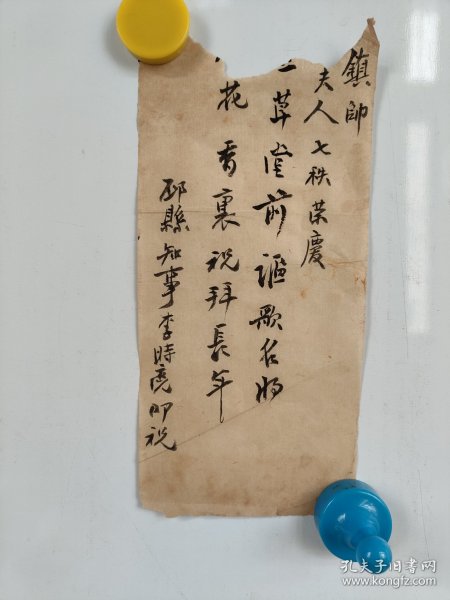 鎮帥
夫人七秩榮慶
草堂前謳歌名將
花香裏祝拜長年
邳縣知事李時亮叩祝
孔夫子旧书网
www.kongfz.com